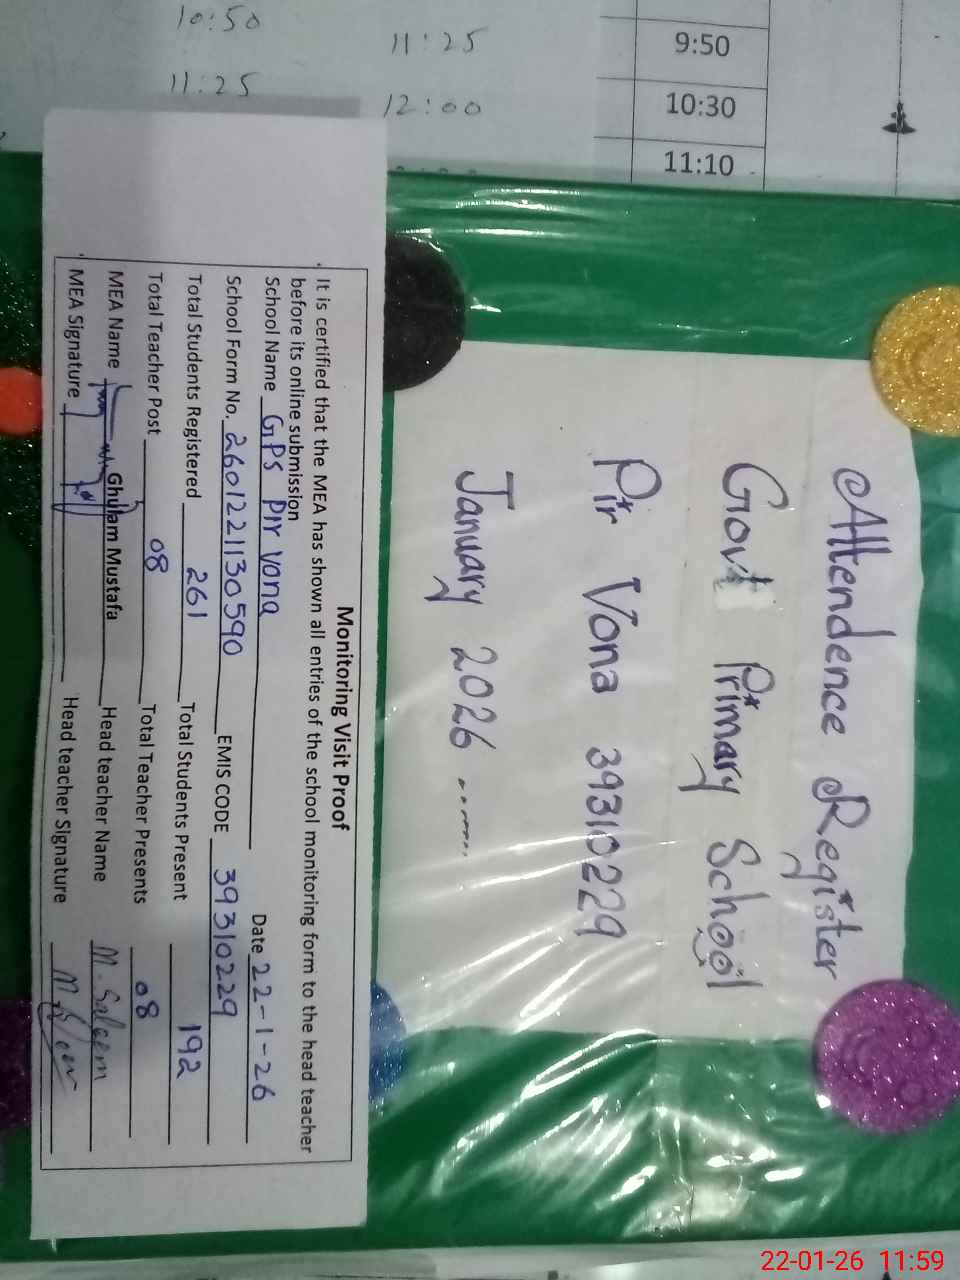 10:50
11:25
11:25
12:00
9:50
10:30
11:10
Attendence Register
Govt Primary School
Pir Vona 39310229
January 2026 .......
Monitoring Visit Proof
It is certified that the MEA has shown all entries of the school monitoring form to the head teacher
before its online submission
School Name GPS Pir Vona Date 22-1-26
School Form No. 2601221130590 EMIS CODE 39310229
Total Students Registered 261 Total Students Present 192
Total Teacher Post 08 Total Teacher Presents 08
MEA Name Ghulam Mustafa Head teacher Name M. Saleem
MEA Signature Head teacher Signature
22-01-26 11:59